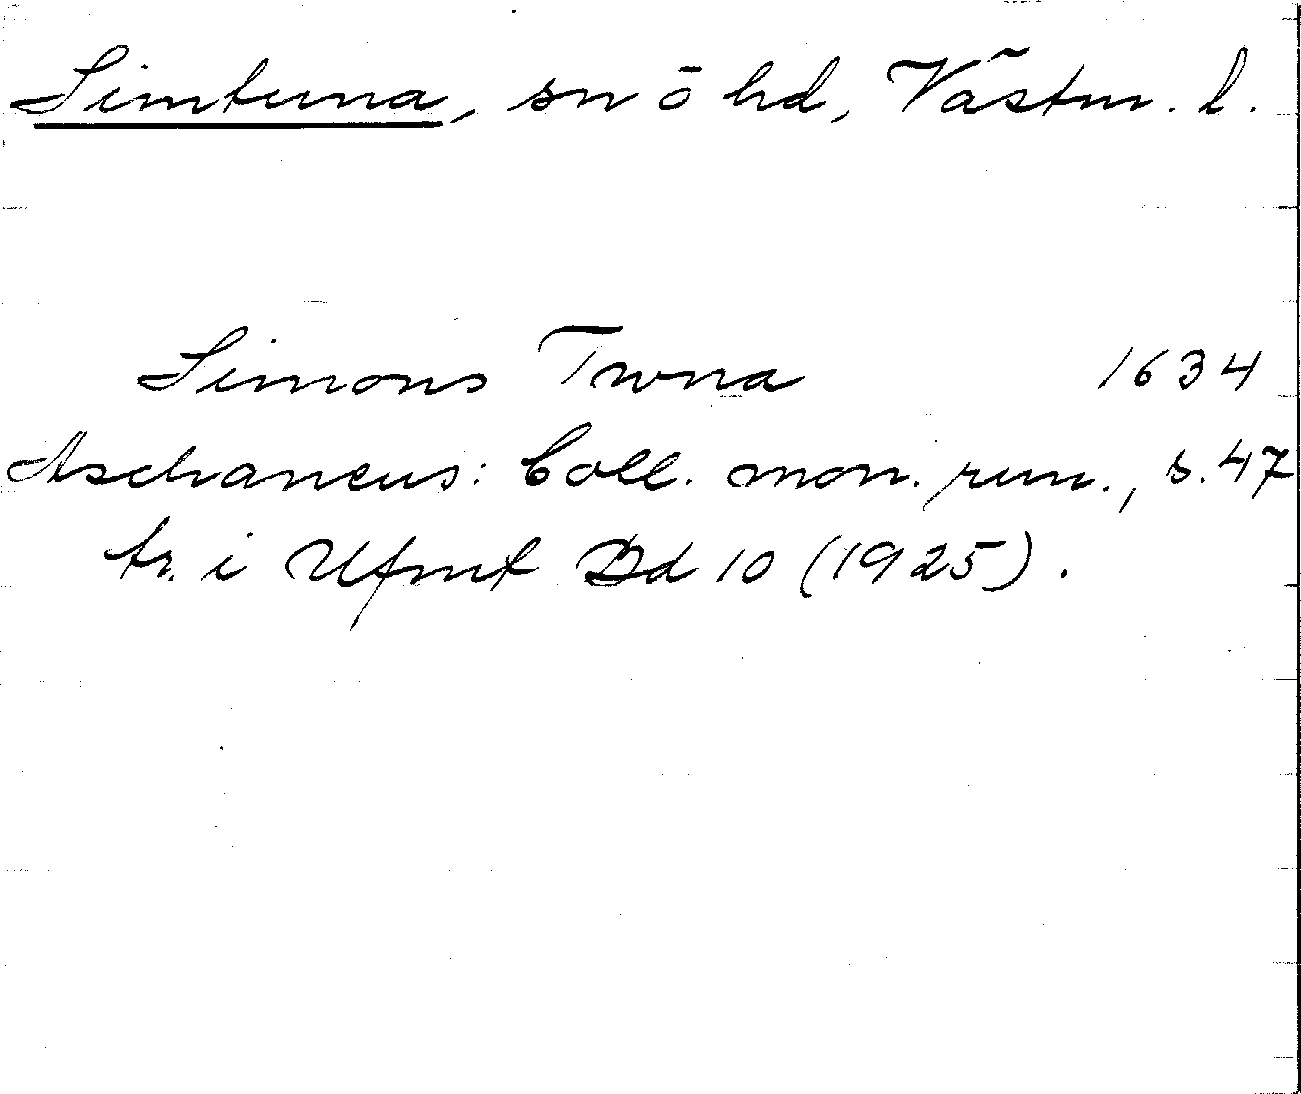 Simtuna, sn ō hd, Västm. l.
Simons Twna 1634
Aschaneus: Coll. mon. run., s. 47
tr. i Ufmt Bd 10 (1925).